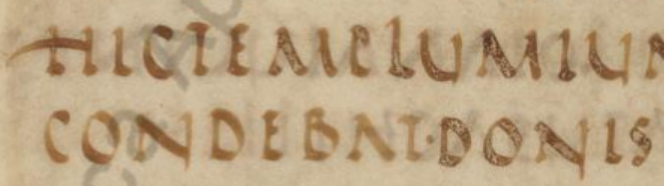 HICTEMPLUMIUN
CONDEBAT·DONIS